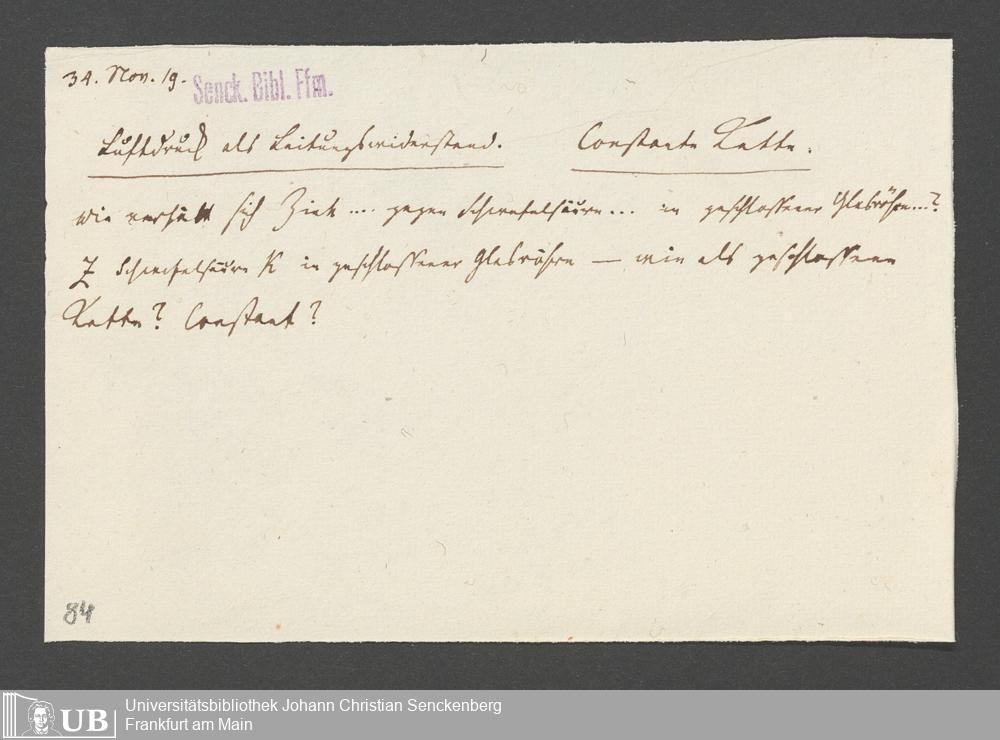 34. Nov. 19. Senck. Bibl. Ffm.
Luftdruck als Leitungswiderstand. Constante Kette.
wie verhält sich Zink .... gegen Schwefelsäure ... in geschlossener Glasröhre...?
Z Schwefelsäure K in geschlossener Glasröhre — wie als geschlossene
Kette? Constant?
84
UB
Universitätsbibliothek Johann Christian Senckenberg
Frankfurt am Main